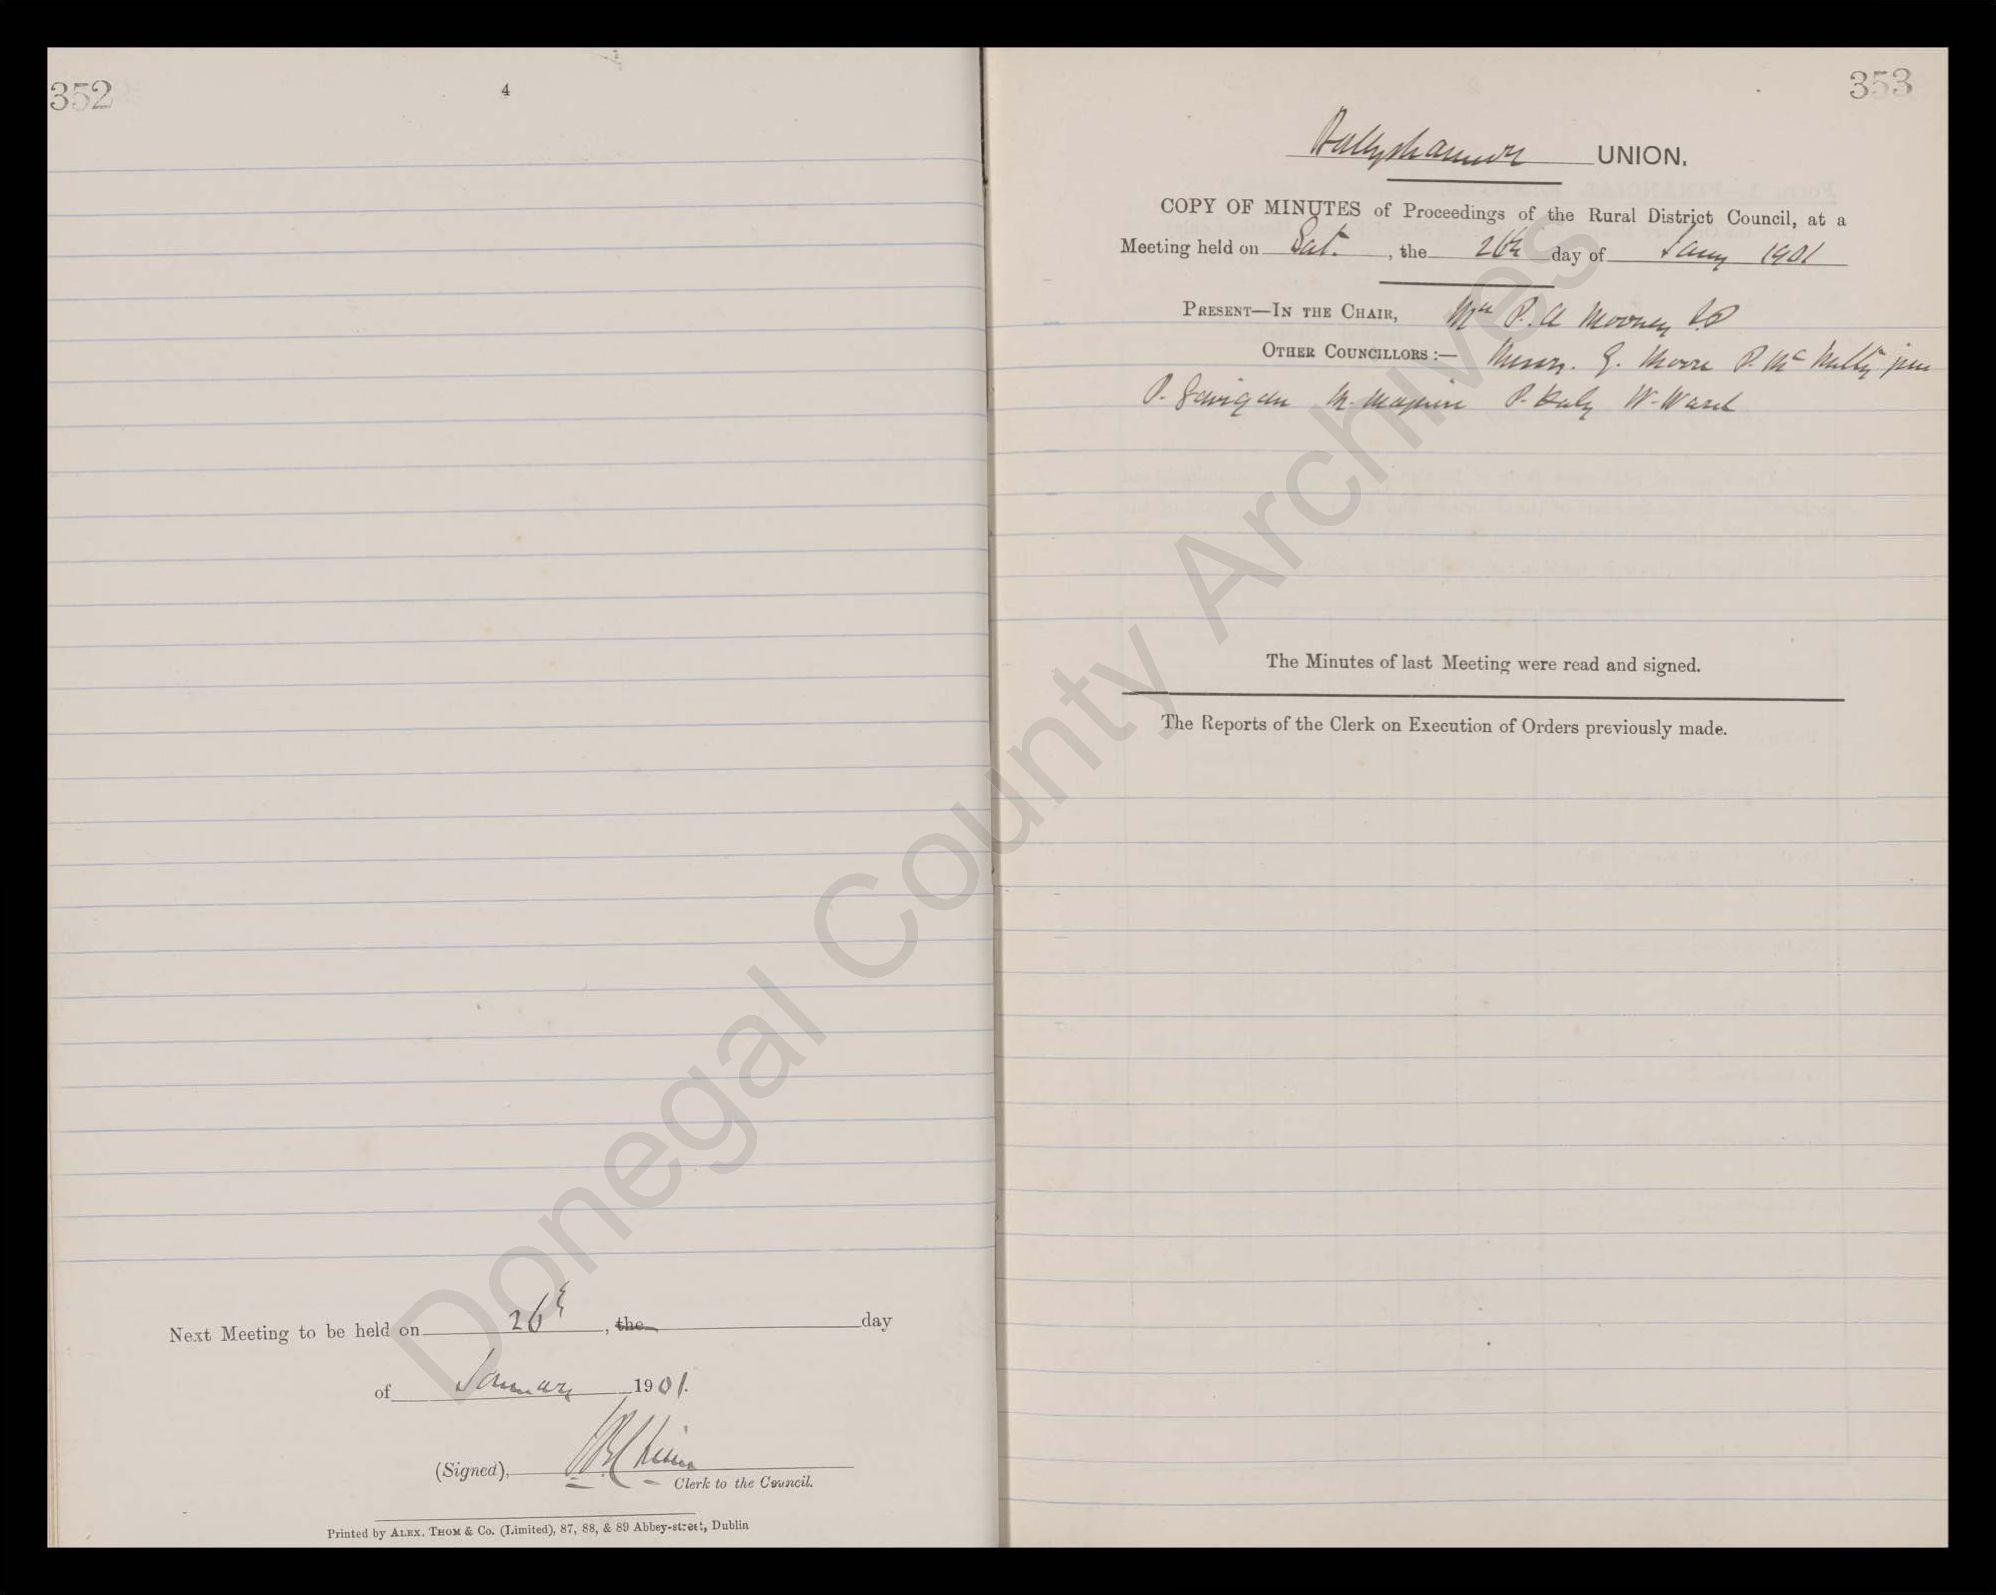 352
4
Next Meeting to be held on 26th, the day
of January 1901.
(Signed),
Clerk to the Council.
Printed by ALEX. THOM & Co. (Limited), 87, 88, & 89 Abbey-street, Dublin
353
Ballyshannon UNION.
COPY OF MINUTES of Proceedings of the Rural District Council, at a
Meeting held on Sat. , the 26th day of Jany 1901
PRESENT—IN THE CHAIR, Mr P. A Mooney J.P
OTHER COUNCILLORS :— Messrs. G. Moore P. McNulty junr
P. Gavigan M. Maguire P. Daly W. Ward
The Minutes of last Meeting were read and signed.
The Reports of the Clerk on Execution of Orders previously made.
Donegal County Archives